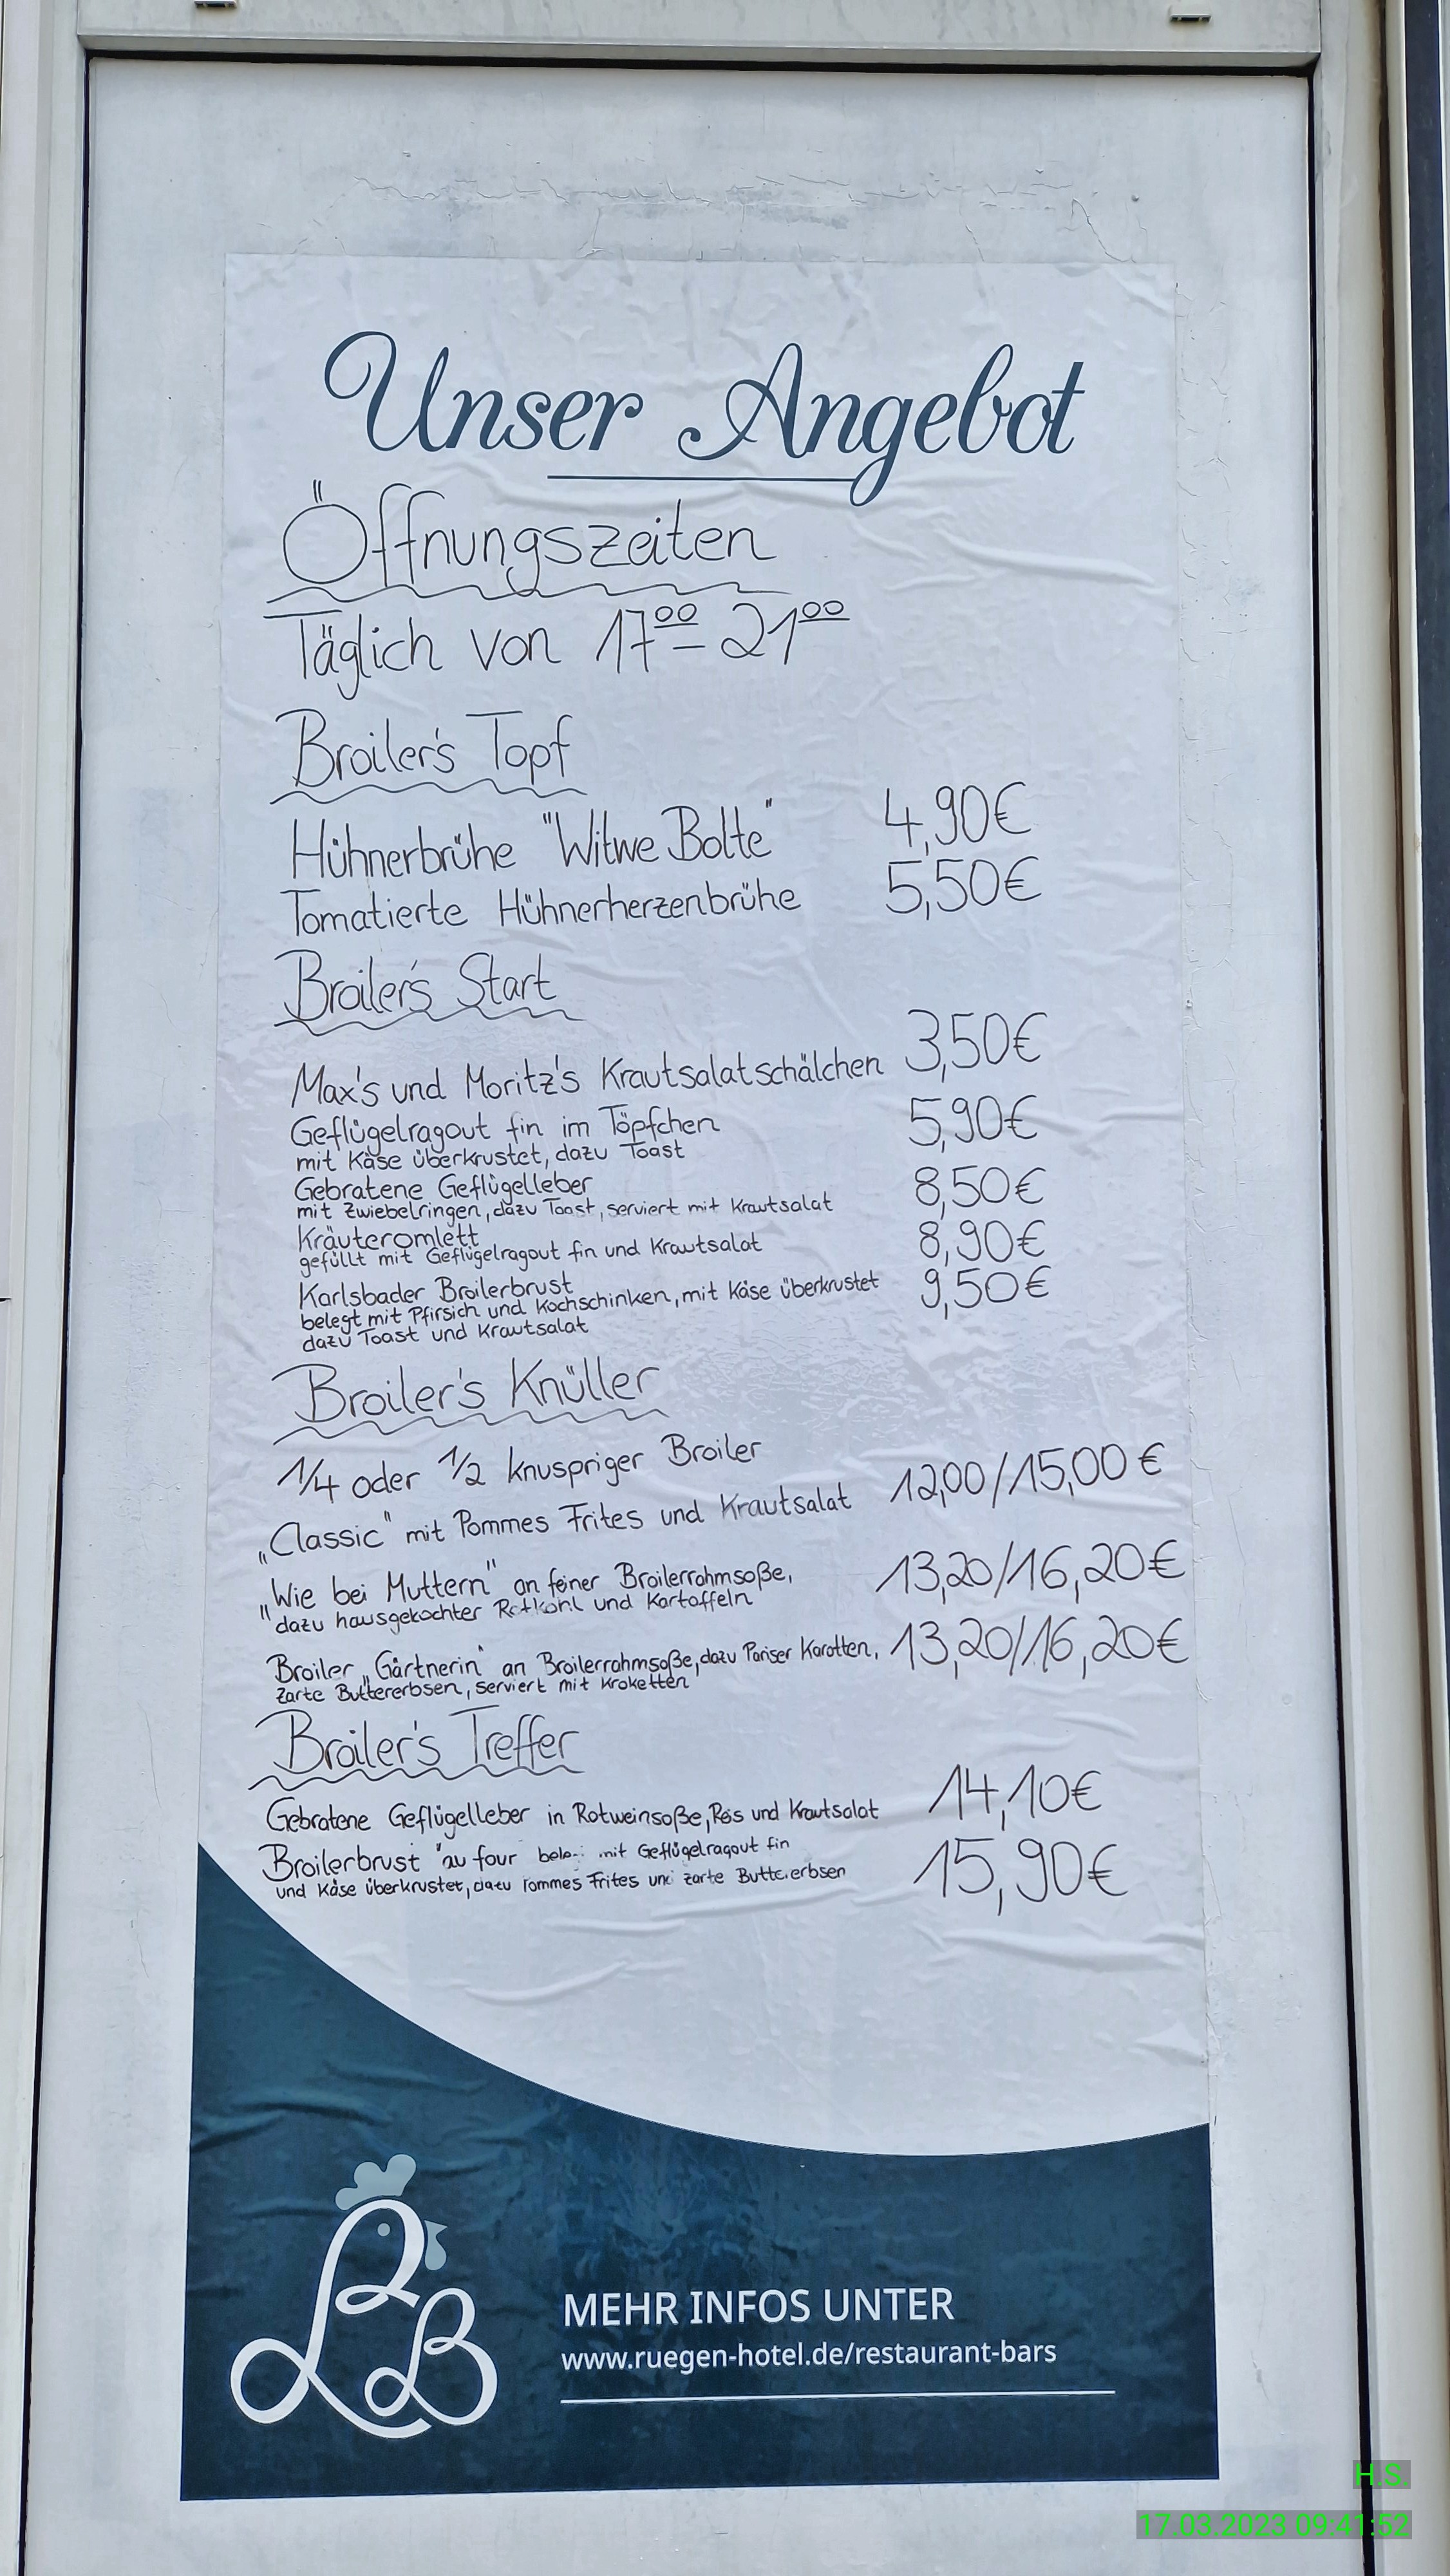 Unser Angebot
Öffnungszeiten
Täglich von 17⁰⁰ – 21⁰⁰
Broiler's Topf
Hühnerbrühe "Witwe Bolte" 4,90€
Tomatierte Hühnerherzenbrühe 5,50€
Broiler's Start
Max's und Moritz's Krautsalatschälchen 3,50€
Geflügelragout fin im Töpfchen 5,90€
mit Käse überkrustet, dazu Toast
Gebratene Geflügelleber 8,50€
mit Zwiebelringen, dazu Toast, serviert mit Krautsalat
Kräuteromlett 8,90€
gefüllt mit Geflügelragout fin und Krautsalat
Karlsbader Broilerbrust 9,50€
belegt mit Pfirsich und Kochschinken, mit Käse überkrustet
dazu Toast und Krautsalat
Broiler's Knüller
1/4 oder 1/2 knuspriger Broiler
„Classic" mit Pommes Frites und Krautsalat 12,00/15,00 €
„Wie bei Muttern" an feiner Broilerrahmsoße, 13,20/16,20€
dazu hausgekochter Rotkohl und Kartoffeln
Broiler „Gärtnerin" an Broilerrahmsoße, dazu Pariser Karotten, 13,20/16,20€
Zarte Buttererbsen, serviert mit Kroketten
Broiler's Treffer
Gebratene Geflügelleber in Rotweinsoße, Reis und Krautsalat 14,10€
Broilerbrust "au four mit Geflügelragout fin 15,90€
und Käse überkrustet, dazu Pommes Frites und zarte Buttererbsen
LBB
MEHR INFOS UNTER
www.ruegen-hotel.de/restaurant-bars
H.S.
17.03.2023 09:41:52